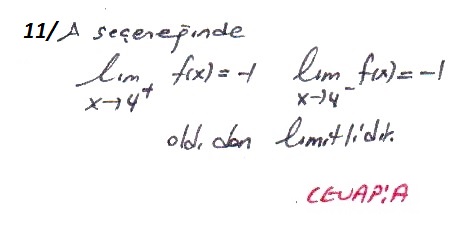 11/ A seçeneğinde
lim x→4⁺ f(x) = -1 lim x→4⁻ f(x) = -1
old. dan limitlidir.
CEVAP: A